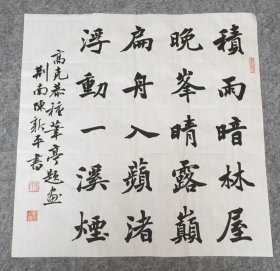 積雨暗林屋
晚峯晴露巔
扁舟入蘋渚
浮動一溪煙
高克恭種筆亭題畫
荆南陳新平書